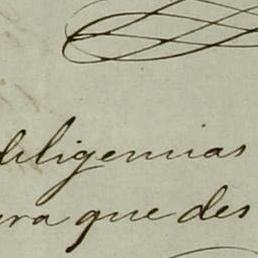 diligencias
ara que des